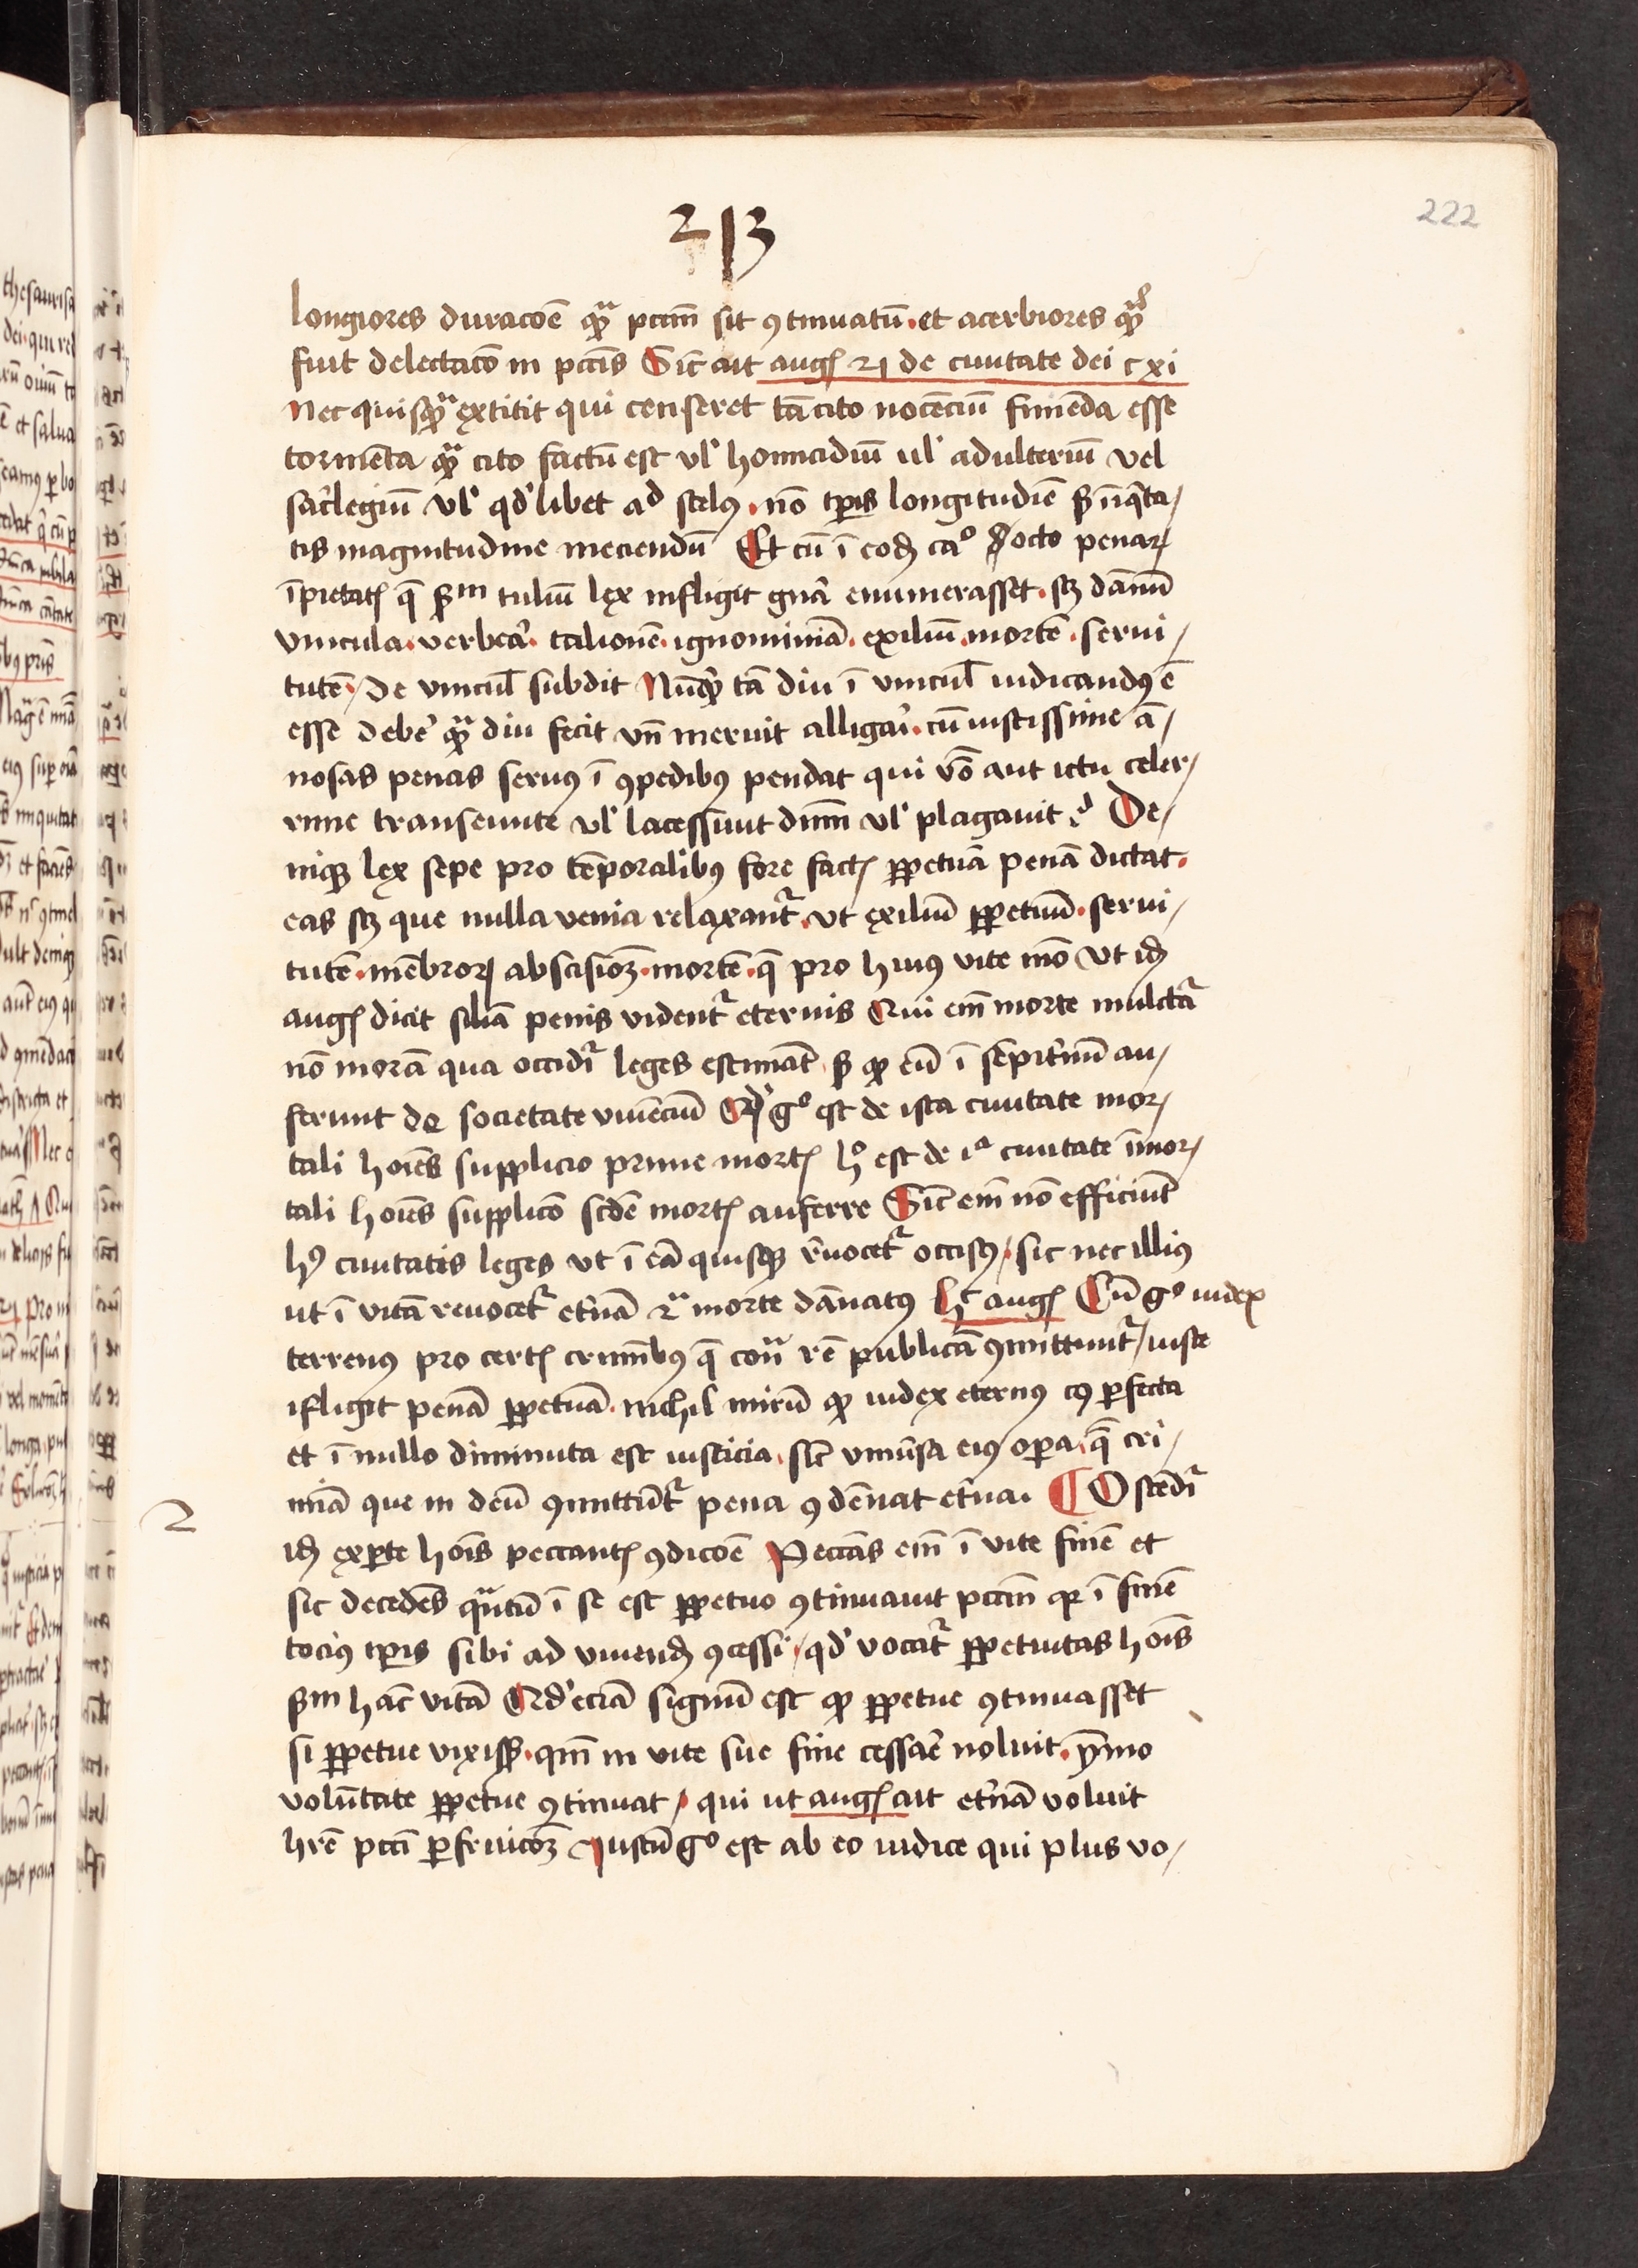 213
222
longiores duracōe quā pctm̄ sit ꝯtinuatū. et acerbiores quā
fuit delectacō in pctīs Sic ait augꝰ 21 de ciuitate dei c xi
Nec quisquā extitit qui censeret tā cito nocēciū finiēda esse
tormēta quā cito factū est ul' homicidiū ul' adulteriū vel
sac̄legiū ul' qd'libet ad scelꝰ. nō tꝑis longitudīe sꝫ īiqͥta/
tis magnitudine meciendū Et cū ī eodē caº octo penaꝝ
ī que scdm tuliū lex infligit gn̄a enumerasset. scꝫ dāmnū
vincula. verbera. talionē. ignominiā. exiliū. mortē. serui/
tutē. De vincul' subdit Nūquid tā diu ī vincul' iudicandꝰ ē
esse debe' quā diu fecit vn̄ meruit alligari. cū iustissime ā/
nosas penas seruꝰ ī ꝯpedibꝰ pendat qui v̄o aut ictu celer/
rime transeunte ul' lacessiuit dnm̄ ul' plagauit De/
niqꝫ lex sepe pro tēporalibꝰ fore factꝭ ꝑpetuā penā dictat.
eas scꝫ que nulla venia relaxantʳ. ut exiliū ꝑpetuū. serui/
tutē. mēbroꝝ abscisionē. mortē. que pro huiꝰ vite mō ut idē
augꝰ dicit penis videntʳ eternis Qui em̄ morte mulctatʳ
nō morā qua occidiʳ leges estimāt sꝫ ꝙ eū ī sēpitnū au/
ferunt de societate viuēciū Qd' gº est de ista ciuitate mor/
tali hoīes supplicio prime mortꝭ hº est de iª ciuitate īmor/
tali hoīes supplicō scdē mortꝭ auferre Sic em̄ nō efficiūt
hꝰ ciuitatis leges ut ī eā quisqꝫ reuocetʳ occisꝰ / sic nec illiꝰ
ut ī vitā reuocetʳ etnā 2ª morte dānatus hec augꝰ Cū gº iudex
terrenꝰ pro certꝭ crimībꝰ que cont̄ rē publicā ꝯmittuntʳ / iuste
ifligit penā ꝑpetuā. nichil mirū ꝙ iudex eternꝰ cꝰ ꝑfecta
et ī nullo diminuta est iusticia. sic̄ vniuersa eiꝰ opera. que cri/
minā que in deū ꝯmittūtʳ pena ꝯdēnat etna. ¶ Ostēdiʳ
2
idē ex ꝑte hoīs peccantꝭ ꝯdicōe Peccās em̄ ī vite finē et
sic decedēs quātū ī se est ꝑpetuo ꝯtinuauit pctm̄ qꝛ ī finē
tociꝰ tꝑis sibi ad viuendū ꝯcessi / qd' vocatʳ ꝑpetuitas hoīs
scdm hāc vitā Qd' eciā signū est ꝙ ꝑpetue ꝯtinuasset
si ꝑpetue vixisset. qm̄ in vite sue fine cessare noluit. ymo
volūtate ꝑpetue ꝯtinuat / qui ut augꝰ ait etnā voluit
hr̄e pcti ꝑfruicōꝫ Iustū gº est ab eo iudice qui plus vo/